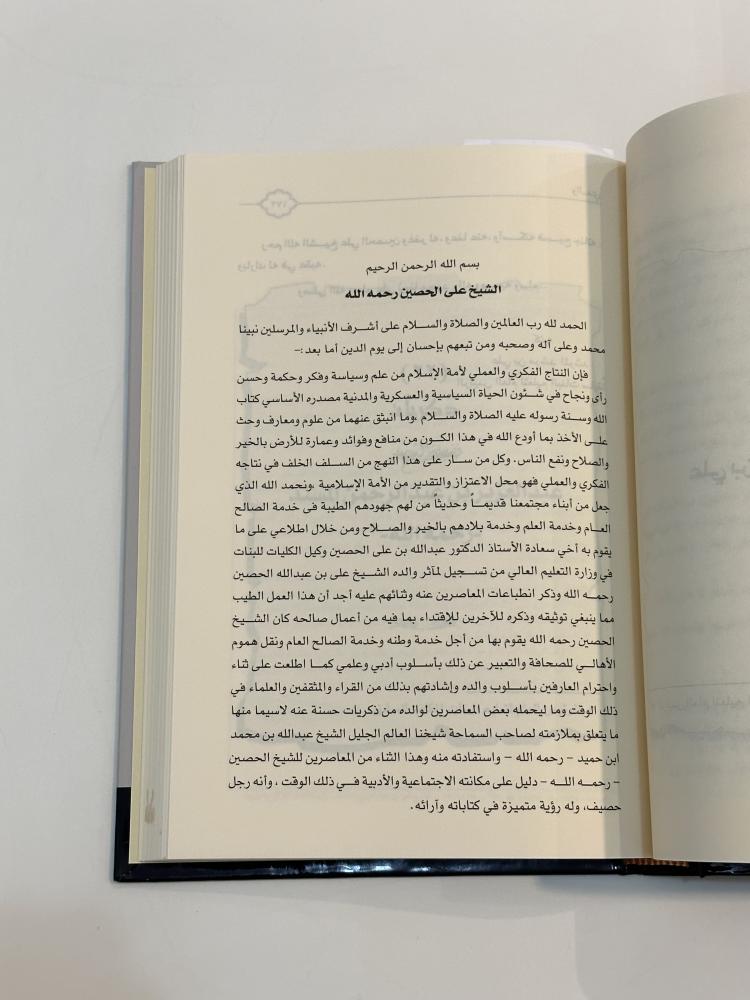 بسم الله الرحمن الرحيم
الشيخ على الحصين رحمه الله
الحمد لله رب العالمين والصلاة والسلام على أشرف الأنبياء والمرسلين نبينا
محمد وعلى آله وصحبه ومن تبعهم بإحسان إلى يوم الدين أما بعد :-
فإن النتاج الفكري والعملي لأمة الإسلام من علم وسياسة وفكر وحكمة وحسن
رأى ونجاح في شئون الحياة السياسية والعسكرية والمدنية مصدره الأساسي كتاب
الله وسنة رسوله عليه الصلاة والسلام ،وما انبثق عنهما من علوم ومعارف وحث
على الأخذ بما أودع الله في هذا الكون من منافع وفوائد وعمارة للأرض بالخير
والصلاح ونفع الناس. وكل من سار على هذا النهج من السلف الخلف في نتاجه
الفكري والعملي فهو محل الاعتزاز والتقدير من الأمة الإسلامية ،ونحمد الله الذي
جعل من أبناء مجتمعنا قديماً وحديثاً من لهم جهودهم الطيبة فى خدمة الصالح
العام وخدمة العلم وخدمة بلادهم بالخير والصلاح ومن خلال اطلاعي على ما
يقوم به أخي سعادة الأستاذ الدكتور عبدالله بن على الحصين وكيل الكليات للبنات
في وزارة التعليم العالي من تسجيل لمآثر والده الشيخ على بن عبدالله الحصين
رحمه الله وذكر انطباعات المعاصرين عنه وثنائهم عليه أجد أن هذا العمل الطيب
مما ينبغي توثيقه وذكره للآخرين للإقتداء بما فيه من أعمال صالحه كان الشيخ
الحصين رحمه الله يقوم بها من أجل خدمة وطنه وخدمة الصالح العام ونقل هموم
الأهالي للصحافة والتعبير عن ذلك بأسلوب أدبي وعلمي كما اطلعت على ثناء
واحترام العارفين بأسلوب والده وإشادتهم بذلك من القراء والمثقفين والعلماء في
ذلك الوقت وما ليحمله بعض المعاصرين لوالده من ذكريات حسنة عنه لاسيما منها
ما يتعلق بملازمته لصاحب السماحة شيخنا العالم الجليل الشيخ عبدالله بن محمد
ابن حميد – رحمه الله – واستفادته منه وهذا الثناء من المعاصرين للشيخ الحصين
– رحمه الله – دليل على مكانته الاجتماعية والأدبية في ذلك الوقت ، وأنه رجل
حصيف، وله رؤية متميزة في كتاباته وآرائه.